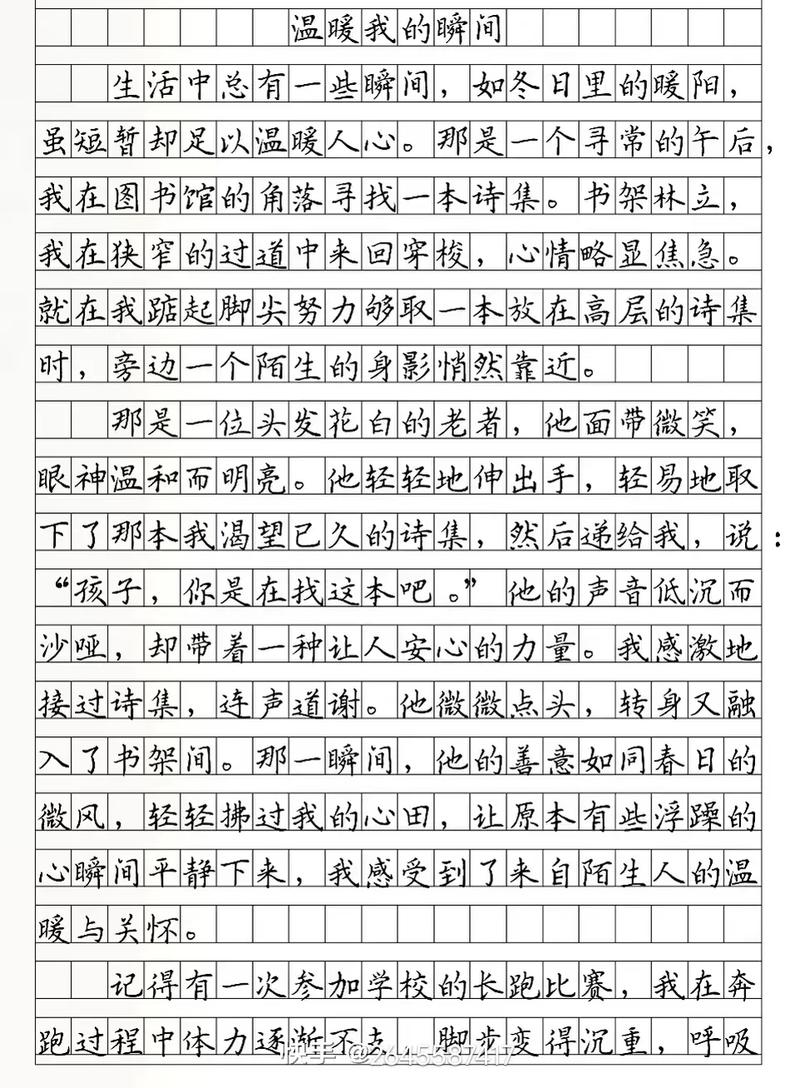 温暖我的瞬间
生活中总有一些瞬间，如冬日里的暖阳，
虽短暂却足以温暖人心。那是一个寻常的午后，
我在图书馆的角落寻找一本诗集。书架林立，
我在狭窄的过道中来回穿梭，心情略显焦急。
就在我踮起脚尖努力够取一本放在高层的诗集
时，旁边一个陌生的身影悄然靠近。
那是一位头发花白的老者，他面带微笑，
眼神温和而明亮。他轻轻地伸出手，轻易地取
下了那本我渴望已久的诗集，然后递给我，说：
“孩子，你是在找这本吧。”他的声音低沉而
沙哑，却带着一种让人安心的力量。我感激地
接过诗集，连声道谢。他微微点头，转身又融
入了书架间。那一瞬间，他的善意如同春日的
微风，轻轻拂过我的心田，让原本有些浮躁的
心瞬间平静下来，我感受到了来自陌生人的温
暖与关怀。
记得有一次参加学校的长跑比赛，我在奔
跑过程中体力逐渐不支，脚步变得沉重，呼吸
快手 @2645587417